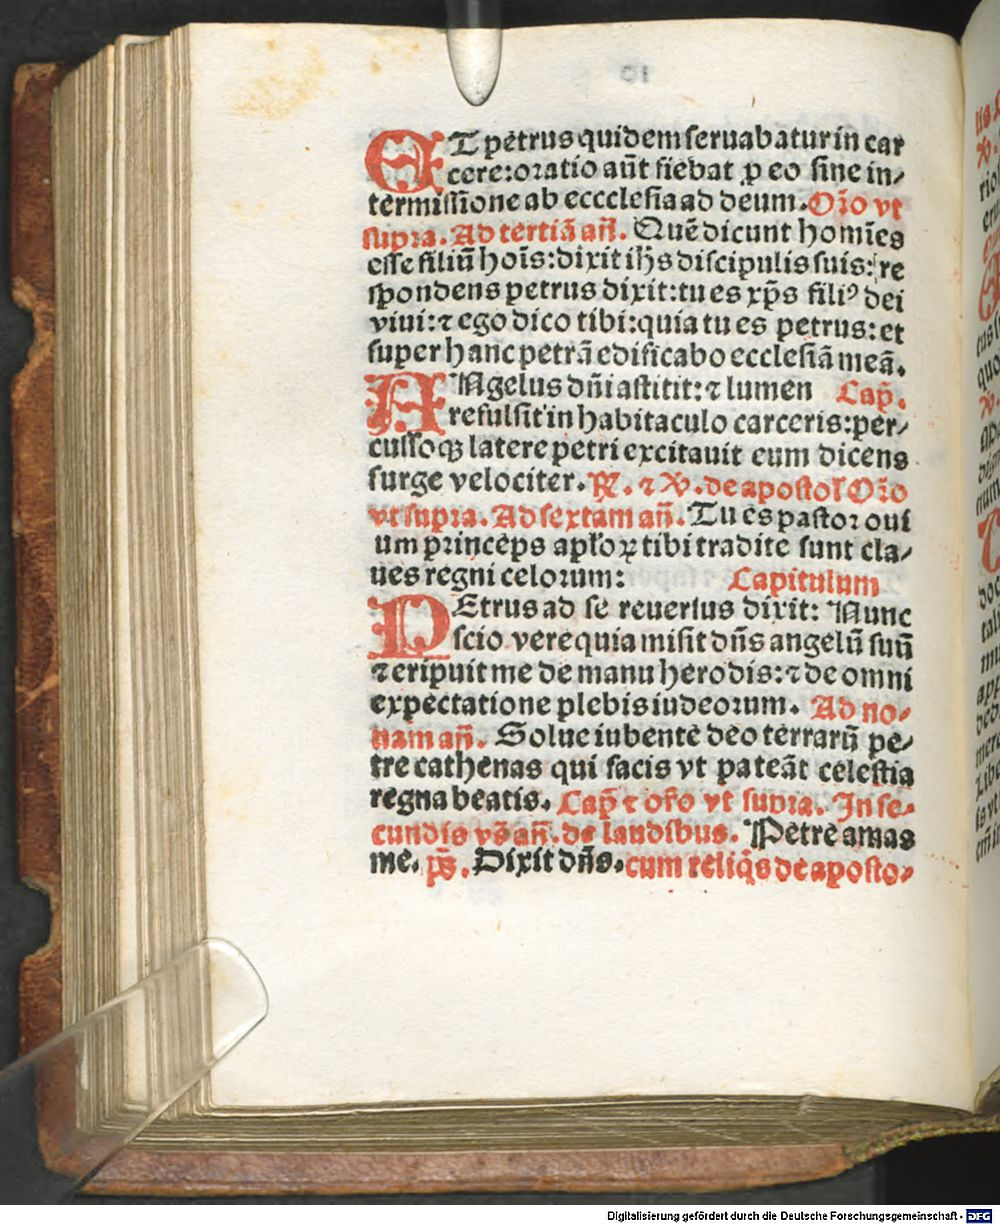 ET petrus quidem seruabatur in car
cere: oratio aūt fiebat ꝑ eo sine in⸗
termissione ab eccclesia ad deum. Oꝛ̄o vt
supꝛa. Ad tertiā añ. Quē dicunt homīes
esse filiū hoīs: dixit ih̄s discipulis suis: re
spondens petrus dixit: tu es xp̄s filiꝰ dei
viui: ⁊ ego dico tibi: quia tu es petrus: et
super hanc petrā edificabo ecclesiā meā.
ANgelus dn̄i astitit: ⁊ lumen Cap̄.
refulsit in habitaculo carceris: per⸗
cussoqꝫ latere petri excitauit eum dicens
surge velociter. ℟. ⁊ ℣. de apostol̄ Oꝛ̄o
vt supꝛa. Ad sextam añ. Tu es pastoꝛ oui
um pꝛinceps apl̄oꝝ tibi tradite sunt cla⸗
ues regni celoꝛum: Capitulum
PEtrus ad se reuersus dixit: Nunc
scio vere quia misit dn̄s angelū suū
⁊ eripuit me de manu herodis: ⁊ de omni
expectatione plebis iudeoꝛum. Ad no⸗
nam añ. Solue iubente deo terrarū pe⸗
tre cathenas qui facis vt pateāt celestia
regna beatis. Cap̄ ⁊ oꝛ̄o vt supꝛa. In se⸗
cundis vs̄ añ. de laudibus. Petre amas
me. ps̄. Dixit dn̄s. cum reliq̄s de aposto⸗
Digitalisierung gefördert durch die Deutsche Forschungsgemeinschaft - DFG